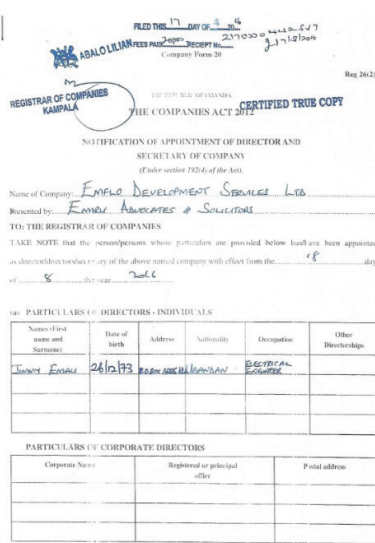 FILED THIS 17 DAY OF 8 20
FEES PAID RECIEPT No.
ABALO LILIAN
Company Form 20
Reg 26(2)
REGISTRAR OF COMPANIES
KAMPALA
THE REPUBLIC OF UGANDA
THE COMPANIES ACT 2012
CERTIFIED TRUE COPY
NOTIFICATION OF APPOINTMENT OF DIRECTOR AND
SECRETARY OF COMPANY
(Under section 192(4) of the Act).
Name of Company: EMFLO DEVELOPMENT SERVICES LTD
Presented by: EMARU ADVOCATES & SOLICITORS
TO: THE REGISTRAR OF COMPANIES
TAKE NOTE that the person/persons whose particulars are provided below has/have been appointed
as director/directors/secretary of the above named company with effect from the 18 day
of 8 the year 2016
(a) PARTICULARS OF DIRECTORS - INDIVIDUALS
Names (First name and Surname) Date of birth Address Nationality Occupation Other Directorships
JIMMY EMAU 26/12/73 UGANDAN ELECTRICAL ENGINEER
PARTICULARS OF CORPORATE DIRECTORS
Corporate Name Registered or principal office Postal address